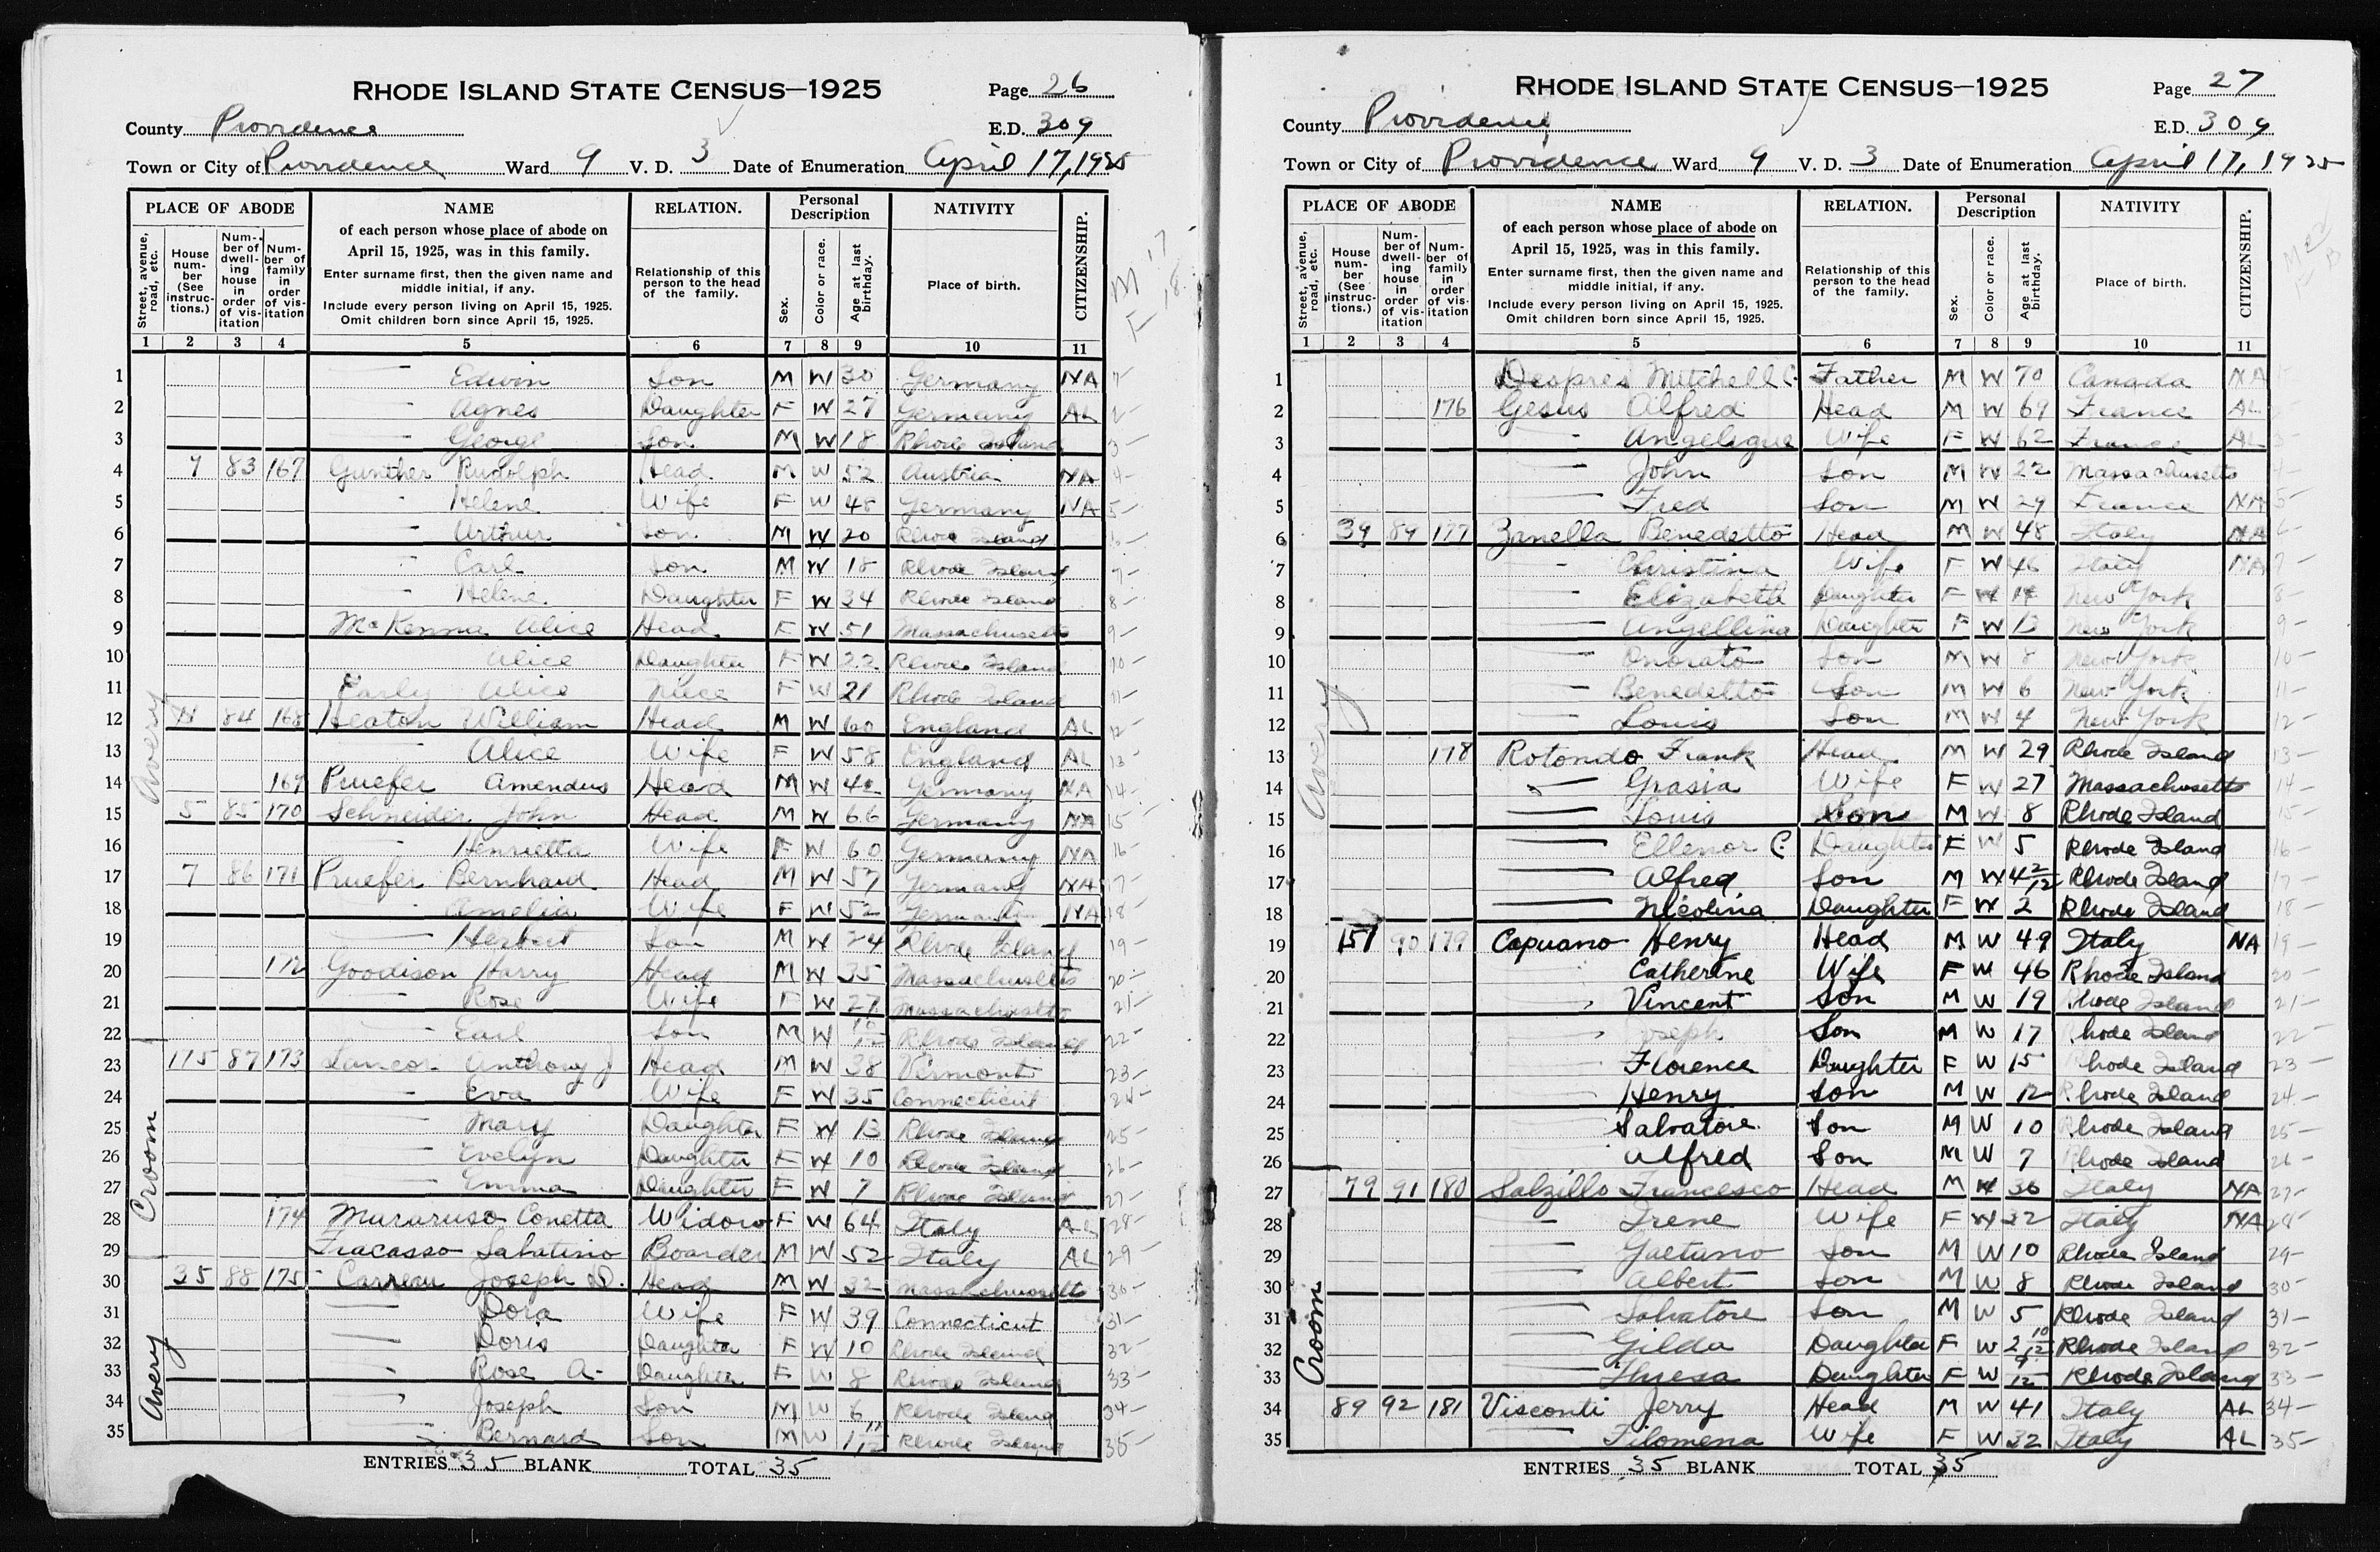 RHODE ISLAND STATE CENSUS—1925
Page 26
County Providence
E.D. 309
Town or City of Providence Ward 9 V. D. 3 Date of Enumeration April 17, 1925
PLACE OF ABODE NAME RELATION. Personal Description NATIVITY CITIZENSHIP.
Street, avenue, road, etc.
House number (See instructions.)
Number of dwelling house in order of visitation
Number of family in order of visitation
of each person whose place of abode on April 15, 1925, was in this family.
Enter surname first, then the given name and middle initial, if any.
Include every person living on April 15, 1925. Omit children born since April 15, 1925.
Relationship of this person to the head of the family.
Sex.
Color or race.
Age at last birthday.
Place of birth.
M 17
F 18
1 2 3 4 5 6 7 8 9 10 11
1 — Edwin Son M W 30 Germany NA
2 — Agnes Daughter F W 27 Germany AL
3 — George Son M W 18 Rhode Island
4 7 83 167 Gunther Rudolph Head M W 52 Austria NA
5 Helene Wife F W 48 Germany NA
6 Arthur Son M W 20 Rhode Island
7 Carl Son M W 18 Rhode Island
8 Helene Daughter F W 34 Rhode Island
9 McKenna Alice Head F W 51 Massachusetts
10 Alice Daughter F W 22 Rhode Island
11 Early Alice Niece F W 21 Rhode Island
12 84 168 Heaton William Head M W 60 England AL
13 — Alice Wife F W 58 England AL
14 169 Pruefer Amendus Head M W Germany NA
15 5 85 170 Schneider John Head M W 66 Germany NA
16 Henrietta Wife F W 60 Germany NA
17 7 86 171 Pruefer Bernhard Head M W 57 Germany NA
18 — Amelia Wife F W 52 Germany NA
19 — Herbert Son M W 24 Rhode Island
20 172 Goodison Harry Head M W 35 Massachusetts
21 — Rose Wife F W 27 Massachusetts
22 — Earl Son M W 10/12 Rhode Island
23 115 87 173 Lancor Anthony J Head M W 38 Vermont
24 — Eva Wife F W 35 Connecticut
25 — Mary Daughter F W 13 Rhode Island
26 — Evelyn Daughter F W 10 Rhode Island
27 — Emma Daughter F W 7 Rhode Island
28 174 Mararuso Conetta Widow F W 64 Italy AL
29 Fracasso Sabatino Boarder M W 52 Italy AL
30 35 88 175 Carreau Joseph D. Head M W 32 Massachusetts
31 — Dora Wife F W 39 Connecticut
32 — Doris Daughter F W 10 Rhode Island
33 Rose A- Daughter F W 8 Rhode Island
34 Joseph Son M W 6 Rhode Island
35 Bernard Son M W 1 11/12 Rhode Island
Avery
Croom
Avery
ENTRIES 35 BLANK TOTAL 35
RHODE ISLAND STATE CENSUS—1925
Page 27
County Providence
E.D. 309
Town or City of Providence Ward 9 V. D. 3 Date of Enumeration April 17, 1925
PLACE OF ABODE NAME RELATION. Personal Description NATIVITY CITIZENSHIP.
Street, avenue, road, etc.
House number (See instructions.)
Number of dwelling house in order of visitation
Number of family in order of visitation
of each person whose place of abode on April 15, 1925, was in this family.
Enter surname first, then the given name and middle initial, if any.
Include every person living on April 15, 1925. Omit children born since April 15, 1925.
Relationship of this person to the head of the family.
Sex.
Color or race.
Age at last birthday.
Place of birth.
1 2 3 4 5 6 7 8 9 10 11
1 Despres Mitchell C. Father M W 70 Canada NA
2 176 Gesus Alfred Head M W 69 France AL
3 — Angelique Wife F W 62 France AL
4 — John Son M W 22 Massachusetts
5 — Fred Son M W 29 France NA
6 39 89 177 Zanella Benedetto Head M W 48 Italy NA
7 — Christina Wife F W 46 Italy NA
8 — Elizabeth Daughter F W 14 New York
9 — Angellina Daughter F W 13 New York
10 — Onorato Son M W 8 New York
11 — Benedetto Son M W 6 New York
12 — Louis Son M W 4 New York
13 178 Rotondo Frank Head M W 29 Rhode Island
14 — Grasia Wife F W 27 Massachusetts
15 — Louis Son M W 8 Rhode Island
16 — Ellenor C. Daughter F W 5 Rhode Island
17 — Alfred Son M W 4 2/12 Rhode Island
18 — Nicolina Daughter F W 2 Rhode Island
19 151 90 179 Capuano Henry Head M W 49 Italy NA
20 Catherine Wife F W 46 Rhode Island
21 Vincent Son M W 19 Rhode Island
22 Joseph Son M W 17 Rhode Island
23 Florence Daughter F W 15 Rhode Island
24 Henry Son M W 12 Rhode Island
25 Salvatore Son M W 10 Rhode Island
26 Alfred Son M W 7 Rhode Island
27 79 91 180 Salzillo Francesco Head M W 36 Italy NA
28 — Irene Wife F W 32 Italy NA
29 — Gaetano Son M W 10 Rhode Island
30 — Albert Son M W 8 Rhode Island
31 — Salvatore Son M W 5 Rhode Island
32 — Gilda Daughter F W 2 10/12 Rhode Island
33 — Theresa Daughter F W 9/12 Rhode Island
34 89 92 181 Visconti Jerry Head M W 41 Italy AL
35 — Filomena Wife F W 32 Italy AL
Avery
Croom
ENTRIES 35 BLANK TOTAL 35